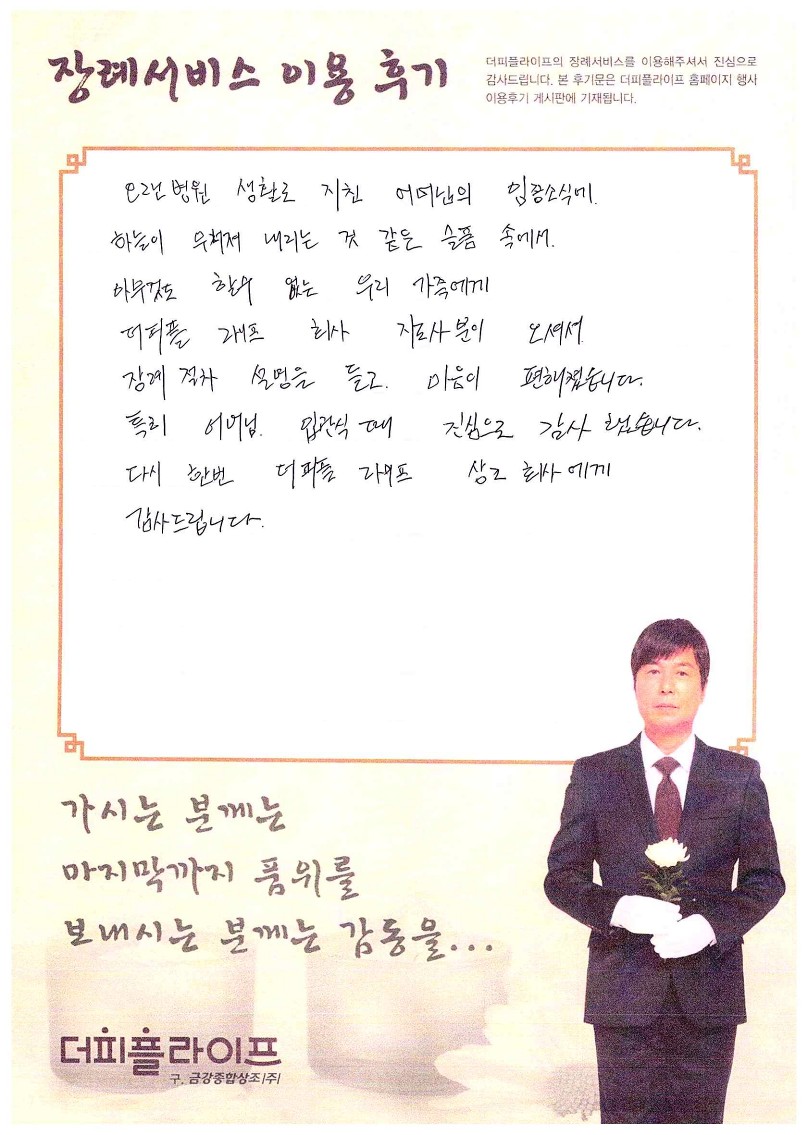 장례서비스 이용 후기
더피플라이프의 장례서비스를 이용해주셔서 진심으로
감사드립니다. 본 후기문은 더피플라이프 홈페이지 행사
이용후기 게시판에 기재됩니다.
오랜 병원 생활로 지친 어머님의 임종소식에.
하늘이 무너져 내리는 것 같은 슬픔 속에서.
아무것도 할수 없는 우리 가족에게
더피플 라이프 회사 지도사분이 오셔서.
장례 절차 설명을 듣고. 마음이 편해졌습니다.
특히 어머님. 입관식 때 진심으로 감사 했습니다.
다시 한번 더피플 라이프 상조 회사에게
감사드립니다.
가시는 분께는
마지막까지 품위를
보내시는 분께는 감동을...
더피플라이프
구. 금강종합상조(주)